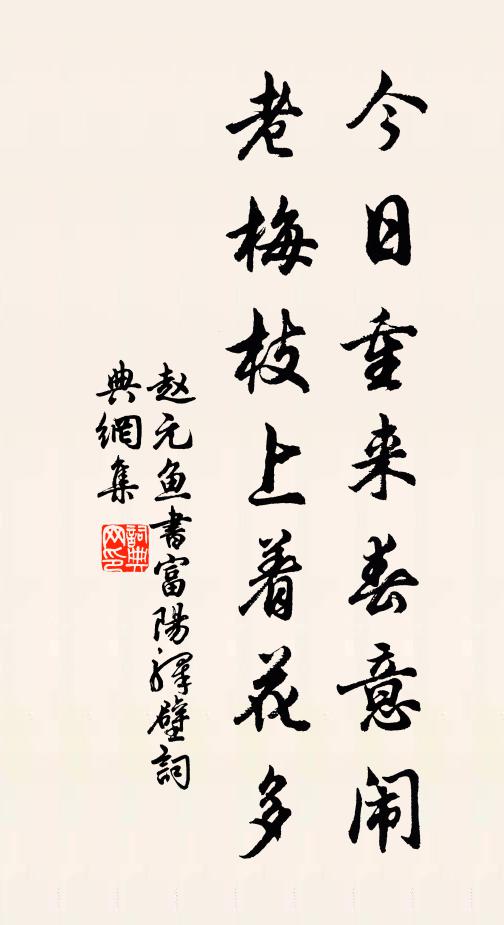 今日重来春意闹
老梅枝上着花多
赵元鱼書富陽驛壁詞
典網集
詞典
网印